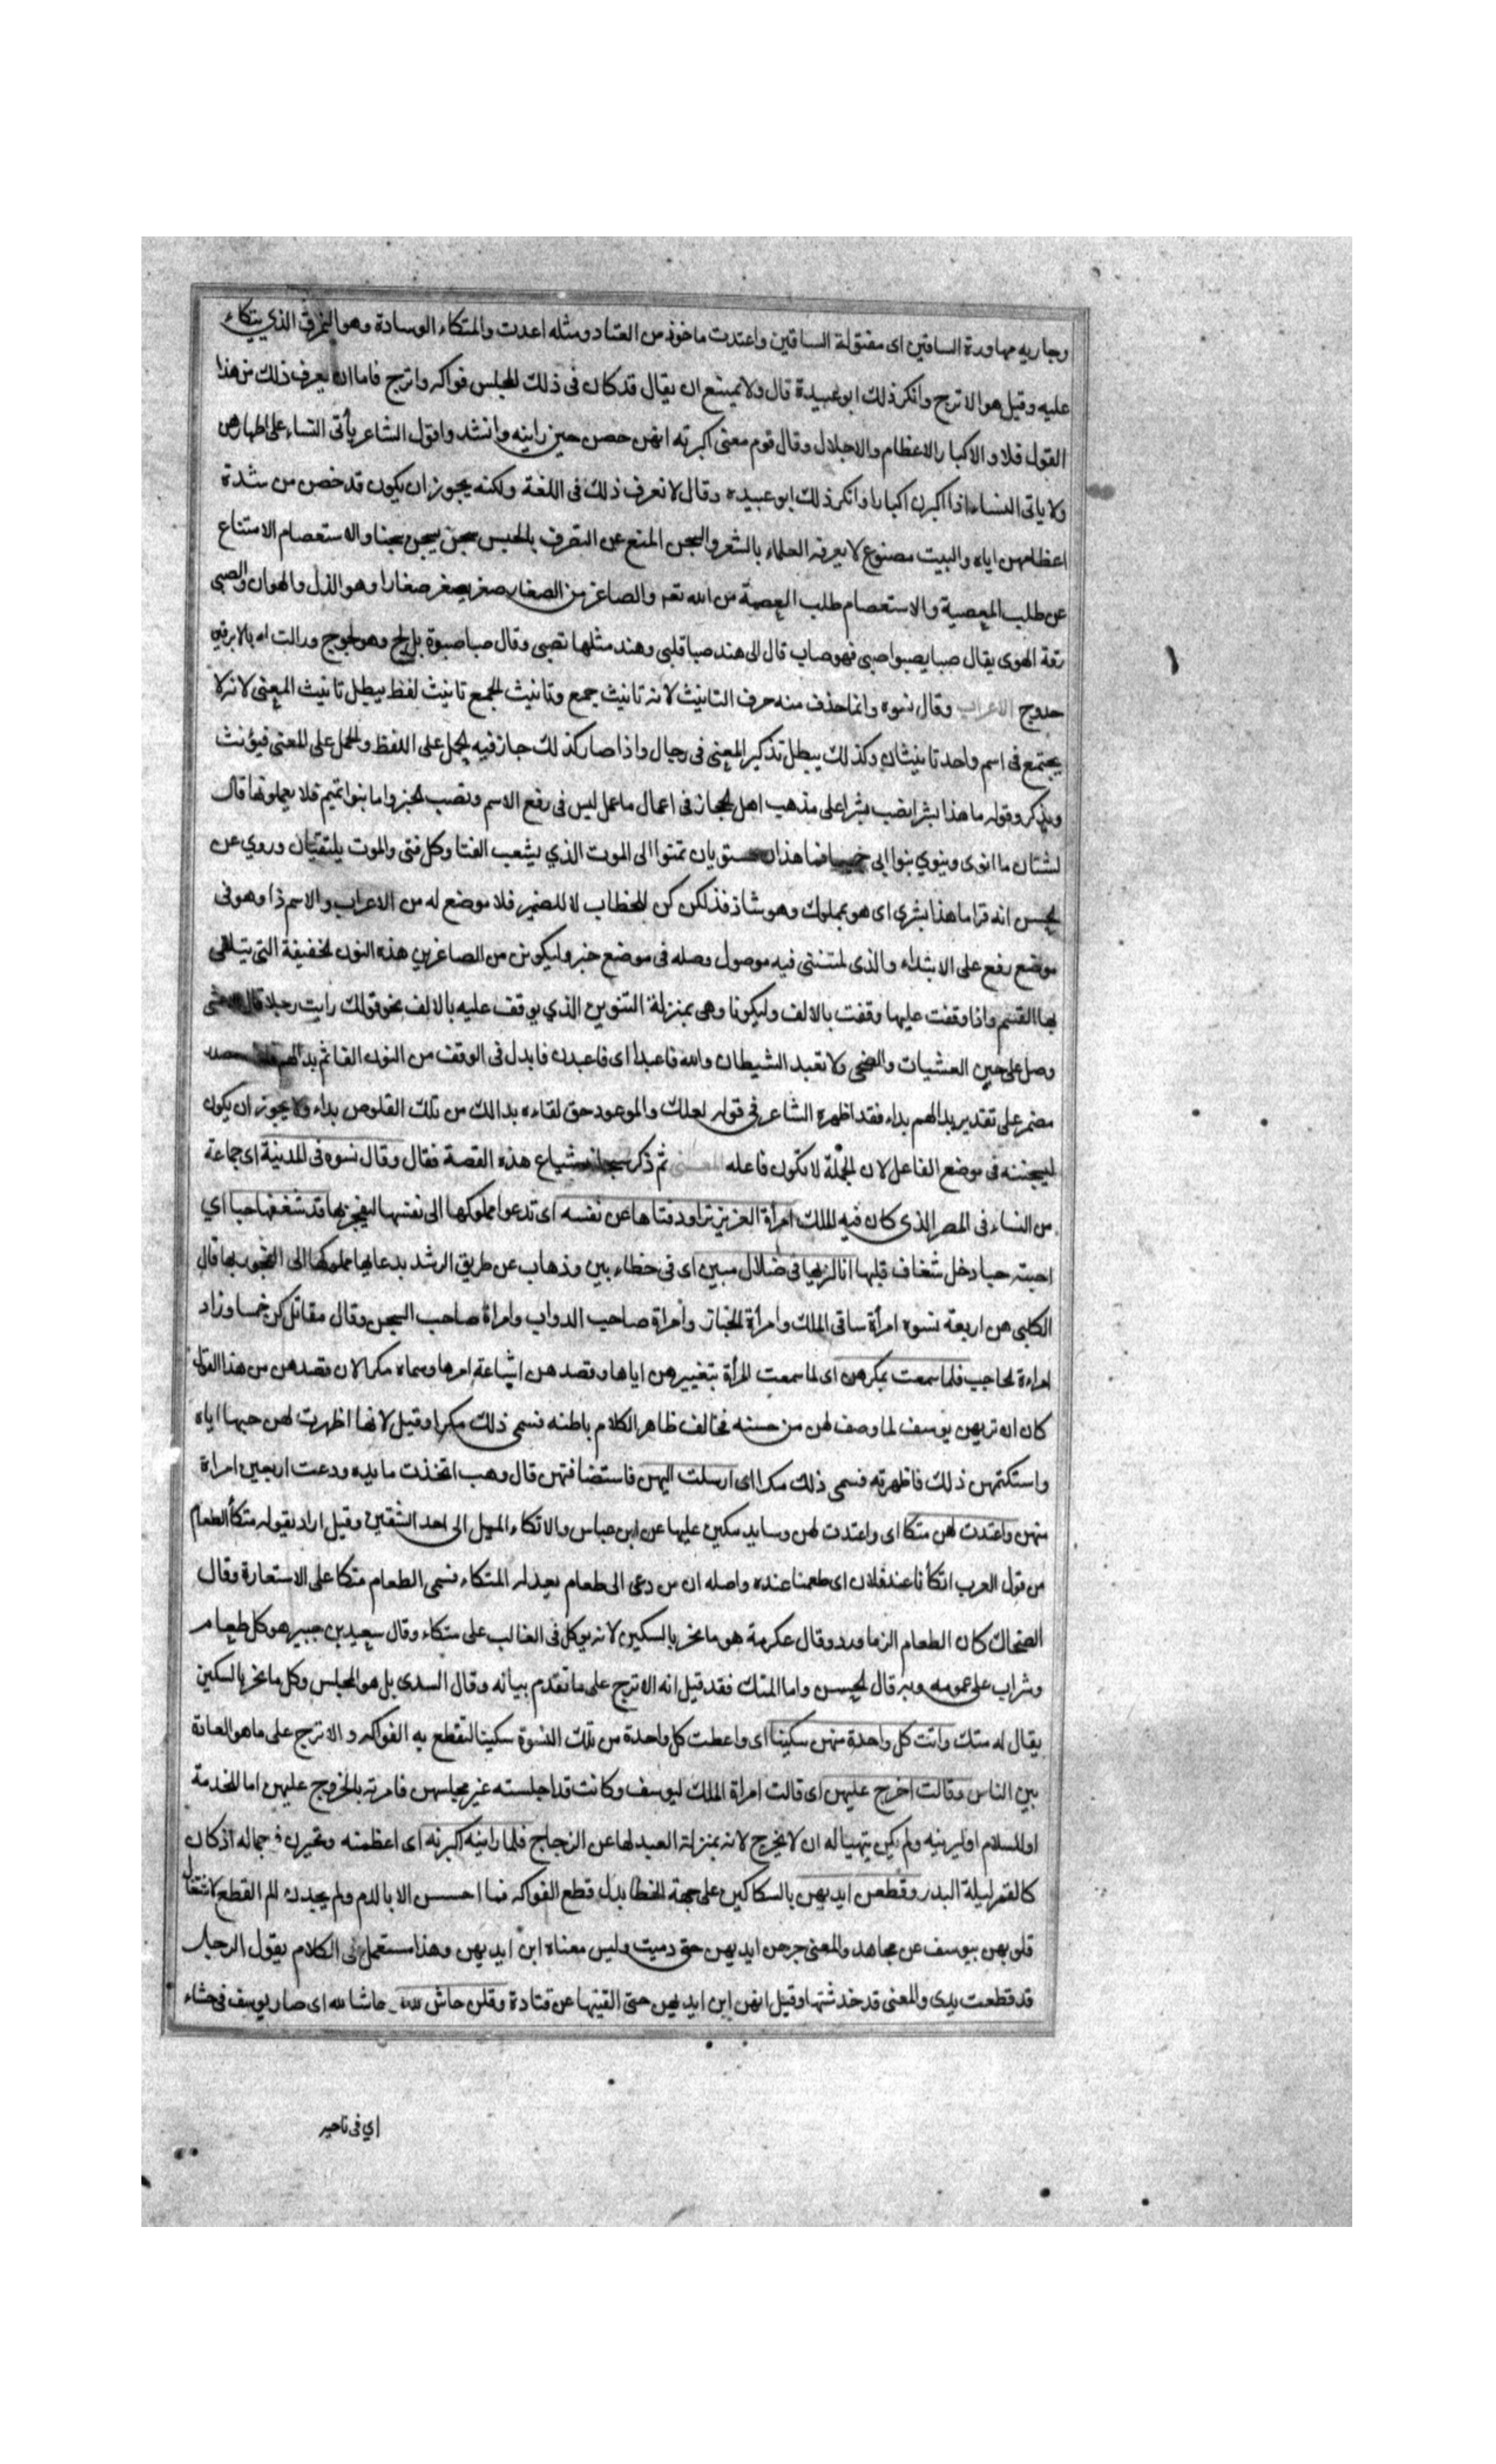 وجاريه مهاودة الساقين اى مفتولة الساقين واعتدت ماخوذ من العتاد ومثله اعدت والمتكاء الوسادة وهو النمرق الذي يتكاء
عليه وقيل هو الاترج وانكر ذلك ابو عبيدة قال ولا يمتنع ان يقال قد كان فى ذلك المجلس فواكه واترج فاما ان يعرف ذلك من هذا
القول فلا والاكبار الاعظام والاجلال وقال قوم معنى اكبرته انهن حضن حين راينه وانشد واقول الشاعر يأتى النساء على اطهارهن
ولا ياتى النساء اذا اكبرن اكبارا وانكر ذلك ابو عبيده وقال لا نعرف ذلك فى اللغة ولكنه يجوز ان يكون قد حضن من شدة
اعظامهن اياه والبيت مصنوع لا يعرفه العلماء بالشعر والسجن المنع عن التصرف بالحبس سجن يسجن سجنا والاستعصام الامتناع
عن طلب المعصية والاستعصام طلب العصمة من الله تعم والصاغر من الصغار صغر يصغر صغارا وهو الذل والهوان والصبى
رقة الهوى يقال صبا يصبوا صبى فهو صاب قال الى هند صبا قلبى وهند مثلها تصبى وقال صبا صبوة بل لج وهو لجوج وزالت له بالابرقين
حدوج الاعراب وقال نسوه وانما حذف منه حرف التانيث لانه تانيث جمع وتانيث الجمع تانيث لفظ يبطل تانيث المعنى لانه لا
يجتمع فى اسم واحد تانيثان وكذلك يبطل تذكير المعنى فى رجال واذا صار كذلك جاز فيه الحمل على اللفظ والحمل على المعنى فيؤنث
ويذكر وقوله ما هذا بشرا نصب بشرا على مذهب اهل الحجاز فى اعمال ما عمل ليس فى رفع الاسم ونصب الخبر واما بنوا تميم فلا يعملونها قال
لشتان ما انوى وينوي بنوا ابى فما هذان مستويان تمنوا الى الموت الذي يشعب الفتا وكل فتى والموت يلتقيان وروي عن
الحسن انه قرا ما هذا بشرى اى هو بمملوك وهو شاذ فذلكن كن للخطاب لا للضمير فلا موضع له من الاعراب والاسم ذا وهو فى
موضع رفع على الابتداء والذى لمتننى فيه موصول وصله فى موضع خبره وليكونن من الصاغرين هذه النون الخفيفة التى يتلقى
بها القسم واذا وقفت عليها وقفت بالالف وليكونا وهى بمنزلة التنوين الذي يوقف عليه بالالف نحو قولك رايت رجلا قال
وصل على حين العشيات والضحى ولا تعبد الشيطان والله فاعبدا اى فاعبدن فابدل فى الوقف من النون الفا ثم بدا لهم
مضمر على تقدير بدا لهم بداء فقد اظهره الشاعر فى قوله لعلك والموعود حق لقاءه بدا لك من تلك القلوص بداء ولا يجوز ان يكون
ليسجننه فى موضع الفاعل لان الجملة لا تكون فاعله المعنى ثم ذكر سبحانه شياع هذه القصة فقال وقال نسوه فى المدينة اى جماعة
من النساء فى المصر الذى كان فيه الملك امرأة العزيز تراود فتاها عن نفسه اى تدعوا مملوكها الى نفسها ليفجر بها قد شغفها حبا اي
احبته حبا دخل شغاف قلبها انا لنريها فى ضلال مبين اى فى خطاء بين وذهاب عن طريق الرشد بدعايها مملوكها الى الفجور بها قال
الكلبى هن اربعة نسوه امرأة ساقى الملك وامرأة الخباز وامراة صاحب الدواب وامراة صاحب السجن وقال مقاتل كن خمسا وزاد
امراءة الحاجب فلما سمعت بمكرهن اى لما سمعت المرأة بتعييرهن اياها وقصدهن اشاعة امرها وسماه مكرا لان قصدهن من هذا القول
كان ان تريهن يوسف لما وصف لهن من حسنه فخالف ظاهر الكلام باطنه فسمى ذلك مكرا وقيل لانها اظهرت لهن حبها اياه
واستكتمهن ذلك فاظهرته فسمى ذلك مكرا اى ارسلت اليهن فاستضافتهن قال وهب اتخذت مايده ودعت اربعين امراة
منهن واعتدت لهن متكا اى واعتدت لهن وسايد سكين عليها عن ابن عباس والاتكاء الميل الى احد الشقين وقيل اراد بقوله متكأ الطعام
من قول العرب اتكأنا عند فلان اى طعمنا عنده واصله ان من دعى الى طعام يعد له المتكاء فسمى الطعام متكا على الاستعارة وقال
الضحاك كان الطعام الزماورد وقال عكرمة هو ما نحر بالسكين لانه يوكل فى الغالب على متكاء وقال سعيد بن جبير هو كل طعام
وشراب على عمومه وبه قال الحسن واما المتك فقد قيل انه الاترج على ما تقدم بيانه وقال السدى بل هو المجلس وكل ما نحر بالسكين
يقال له متك واتت كل واحدة منهن سكينا اى واعطت كل واحدة من تلك النسوة سكينا لتقطع به الفواكه والاترج على ما هو العادة
بين الناس وقالت اخرج عليهن اى قالت امراة الملك ليوسف وكانت قد اجلسته غير مجلسهن فامرته بالخروج عليهن اما للخدمة
او للسلام او ليرينه ولم يكن يتهيا له ان لا يخرج لانه بمنزلة العبد لها عن الزجاج فلما راينه اكبرنه اى اعظمنه وتحيرن فى جماله اذ كان
كالقمر ليلة البدر وقطعن ايديهن بالسكاكين على جهة الخطا بدل قطع الفواكه فما احسسن الا بالدم ولم يجدن الم القطع لاشتغال
قلوبهن بيوسف عن مجاهد والمعنى جرحن ايديهن حتى دميت وليس معناه ابن ايديهن وهذا مستعمل فى الكلام يقول الرجل
قد قطعت يدى والمعنى قد خدشتها وقيل انهن ابن ايديهن حتى القينها عن قتادة وقلن حاش لله حاشا لله اى صار يوسف فى حشاء
اي فى ناحيه